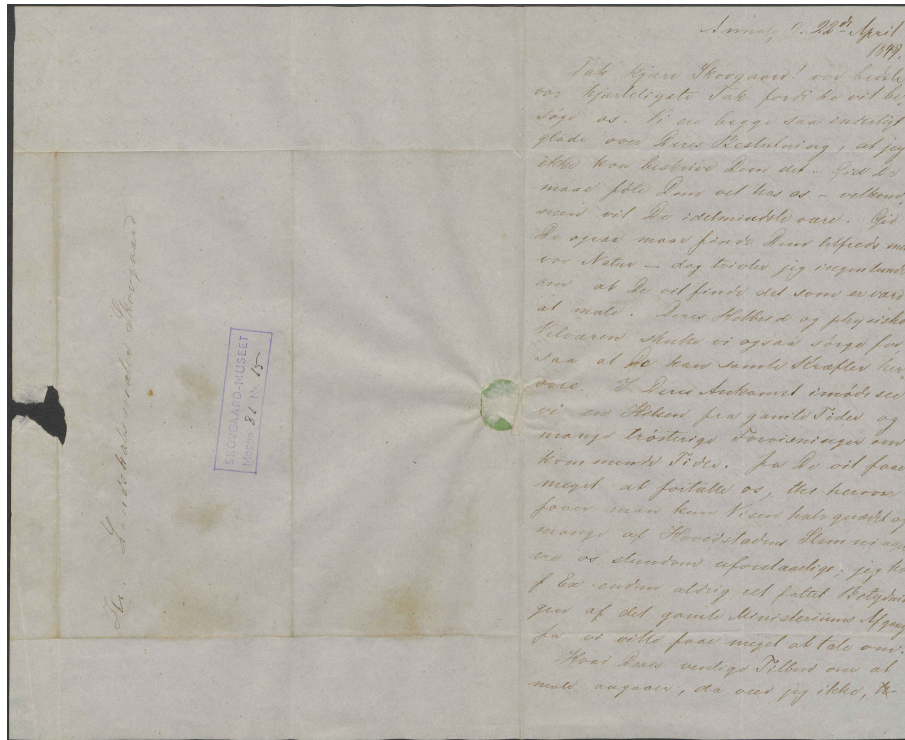 Hr Landskabsmaler Skovgaard
SKOVGAARD-MUSEET
Mappe 81 Nr. 15
d. 22de April
1849.
Tak kjære Skovgaard! vor
vor hjerteligste Tak fordi De vil be-
søge os. Vi ere begge saa inderligt
glade over Deres Beslutning, at jeg
ikke kan beskrive Dem det. Gid De
maa føle Dem vel hos os – velkom
men vil De idetmindste være. Gid
De ogsaa maa finde Dem tilfreds
vor Natur – dog tvivler jeg ingenlunde
om at De vil finde det som er værd
at male. Deres Helbred og physiske
Velværen skulle vi ogsaa sørge for
saa at De kan samle Kræfter her-
ovre. I Deres Ankomst imødesee
vi en Hilsen fra gamle Tider og
mange trøsterige Forvisninger om
kommende Tider. Ja De vil faae
meget at fortælle os, thi herovre
faaer man kun Visen halvquædet og
mange af Hovedstadens Stemninge
ere os stundom uforstaaelige; jeg
f. Ex endnu aldrig ret fattet Betydnin
gen af det gamle Ministeriums Afgang
Ja vi ville faae meget at tale om.
Hvad Deres venlige Tilbud om at
male angaaer, da veed jeg ikke,